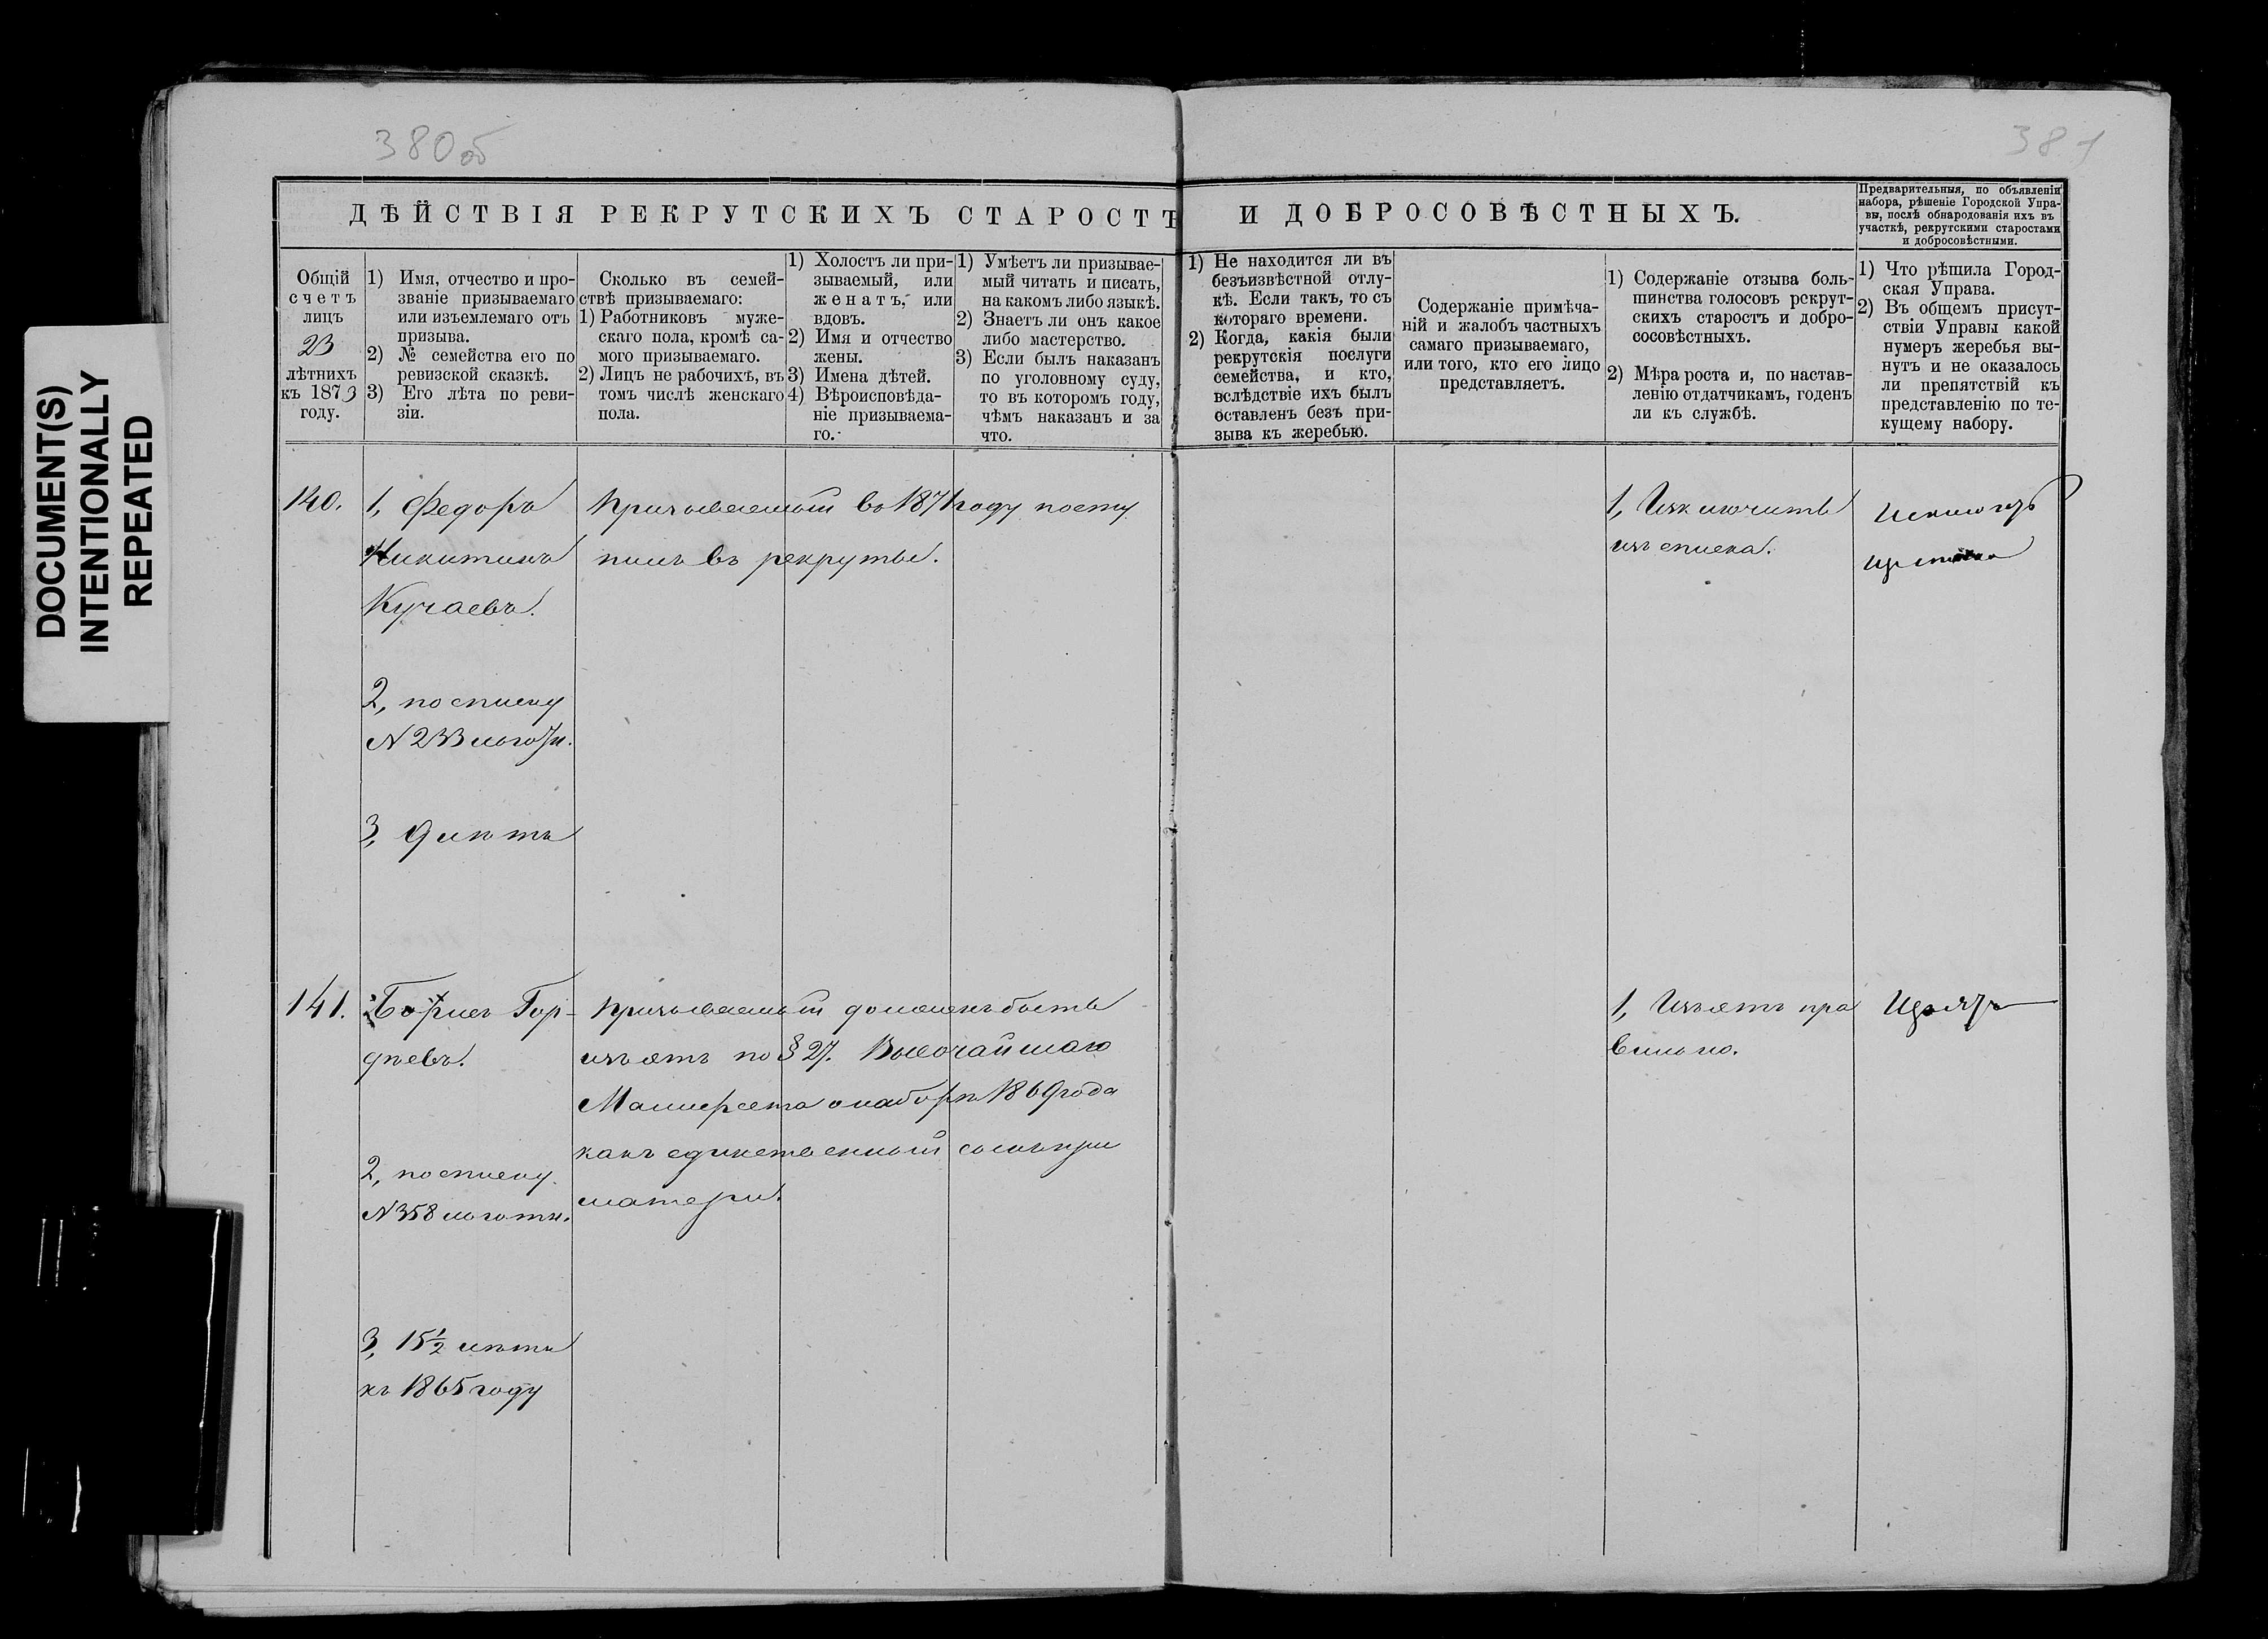 DOCUMENT(S)
INTENTIONALLY
REPEATED
380 об
381
ДѢЙСТВІЯ РЕКРУТСКИХЪ СТАРОСТЪ И ДОБРОСОВѢСТНЫХЪ.
Предварительныя, по объявленіи
набора, рѣшеніе Городской Упра-
вы, послѣ обнародованія ихъ въ
участкѣ, рекрутскими старостами
и добросовѣстными.
Общій
счетъ
лицъ
23
лѣтнихъ
къ 1873
году.
1) Имя, отчество и про-
званіе призываемаго
или изъемлемаго отъ
призыва.
2) № семейства его по
ревизской сказкѣ.
3) Его лѣта по реви-
зіи.
Сколько въ семей-
ствѣ призываемаго:
1) Работниковъ муже-
скаго пола, кромѣ са-
мого призываемаго.
2) Лицъ не рабочихъ, въ
томъ числѣ женскаго
пола.
1) Холостъ ли при-
зываемый, или
женатъ, или
вдовъ.
2) Имя и отчество
жены.
3) Имена дѣтей.
4) Вѣроисповѣда-
ніе призываема-
го.
1) Умѣетъ ли призывае-
мый читать и писать,
на какомъ либо языкѣ.
2) Знаетъ ли онъ какое
либо мастерство.
3) Если былъ наказанъ
по уголовному суду,
то въ которомъ году,
чѣмъ наказанъ и за
что.
1) Не находится ли въ
безъизвѣстной отлу-
кѣ. Если такъ, то съ
котораго времени.
2) Когда, какія были
рекрутскія послуги
семейства, и кто,
вслѣдствіе ихъ былъ
оставленъ безъ при-
зыва къ жеребью.
Содержаніе примѣча-
ній и жалобъ частныхъ
самаго призываемаго,
или того, кто его лицо
представляетъ.
1) Содержаніе отзыва боль-
шинства голосовъ рекрут-
скихъ старостъ и добро-
сосовѣстныхъ.
2) Мѣра роста и, по настав-
ленію отдатчикамъ, годенъ
ли къ службѣ.
1) Что рѣшила Город-
ская Управа.
2) Въ общемъ присут-
ствіи Управы какой
нумеръ жеребья вы-
нутъ и не оказалось
ли препятствій къ
представленію по те-
кущему набору.
140.
1, Федоръ
Никитинъ
Кучаевъ.
2, по списку
N 233 льготн.
3, 9 лѣтъ
Призываемый въ 1871 году посту
пилъ въ рекруты.
1, Исключить
изъ списка.
Исключ
141.
Борисъ Гор-
дѣевъ.
2, по списку
N 358 льготн.
3, 15½ лѣтъ
къ 1865 году
Призываемый долженъ быть
изъятъ по § 27. Высочайшаго
Манифеста о наборѣ 1869 года
какъ единственный сынъ при
матери.
1, Изъятъ пра
вильно.